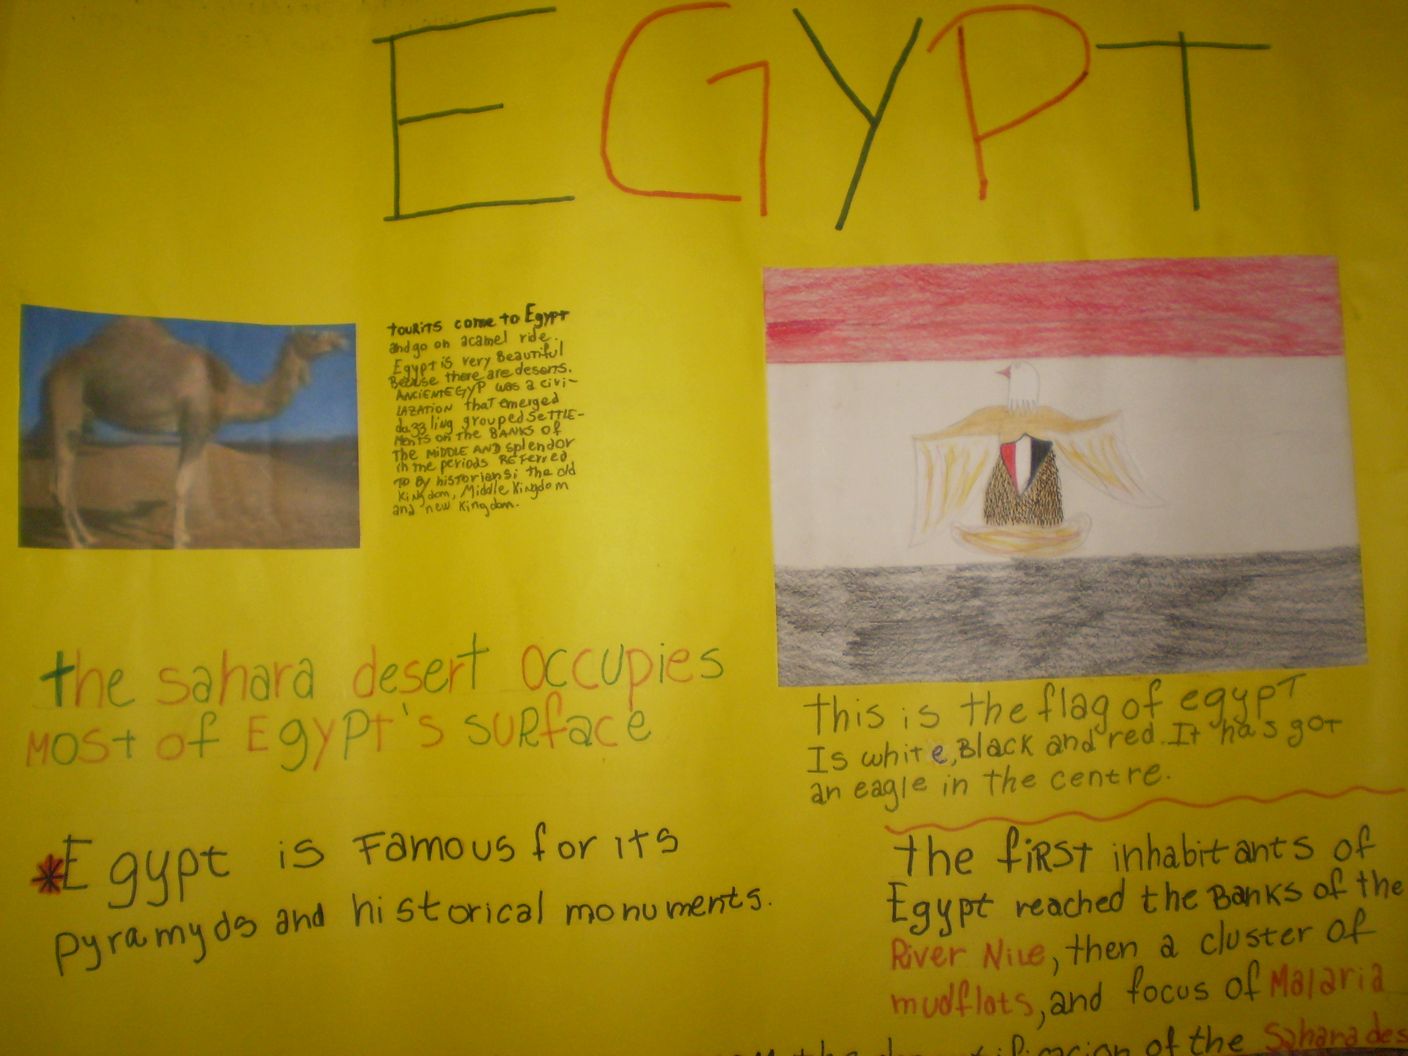 EGYPT
tourits come to Egypt
and go on a camel ride.
Egypt is very Beautiful
Becuse there are deserts.
ANCIENT EGYP was a civi-
LAZATION that emerged
dazzling grouped SETTLE-
ments on the BANKS OF
The MIDDLE AND splendor
in the periods REFerred
TO By historians: the old
kingdom, Middle Kingdom
and new Kingdom.
the sahara desert occupies
MOST of Egypt's surface
*Egypt is Famous for its
pyramyds and historical monuments.
this is the flag of egypt
Is white, Black and red. It has got
an eagle in the centre.
the fiRST inhabitants of
Egypt reached the Banks of the
River Nile, then a cluster of
mudflats, and focus of Malaria
of the Sahara des